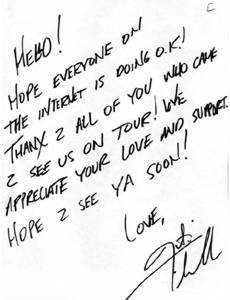 HELLO!
HOPE EVERYONE ON
THE INTERNET IS DOING O.K!
THANX 2 ALL OF YOU WHO CAME
2 SEE US ON TOUR! WE
APPRECIATE YOUR LOVE AND SUPPORT.
HOPE 2 SEE YA SOON!
LOVE,